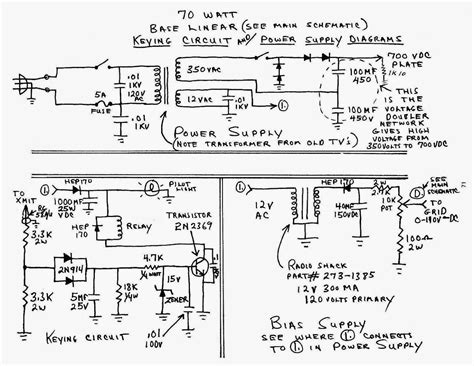 70 WATT
BASE LINEAR (SEE MAIN SCHEMATIC)
KEYING CIRCUIT AND/OR POWER SUPPLY DIAGRAMS
5A
FUSE
.01
1KV
120V
AC
.01
1KV
350VAC
12VAC
.01
1KV
①.
100MF
450
100MF
450V
700 VDC
PLATE
1K 10
THIS
IS THE
VOLTAGE
DOUBLER
NETWORK
GIVES HIGH
VOLTAGE FROM
350VOLTS TO 700VDC
POWER SUPPLY
(NOTE TRANSFORMER FROM OLD TV'S)
TO
XMIT
①.
HEP170
1000MF
25W
VDC
PILOT
LIGHT
HEP
170
RELAY
TRANSISTOR
2N2369
3.3K
2W
2N914
4.7K
1/4W
15V
ZENER
3.3K
2W
5MF
25V
18K
1/4W
.01
100V
KEYING CIRCUIT
①.
12V
AC
HEP170
40MF
150VDC
2W
2.7K
10K
POT
SEE
MAIN
SCHEMATIC
TO
GRID
0-140V-DC
100Ω
2W
RADIO SHACK
PART# 273-1385
12V 300 MA
120 VOLTS PRIMARY
BIAS SUPPLY
SEE WHERE ①. CONNECTS
TO ①. IN POWER SUPPLY